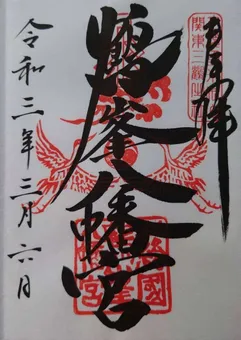 奉拝
関東三鶴峯
鶴峯八幡宮
令和三年三月六日